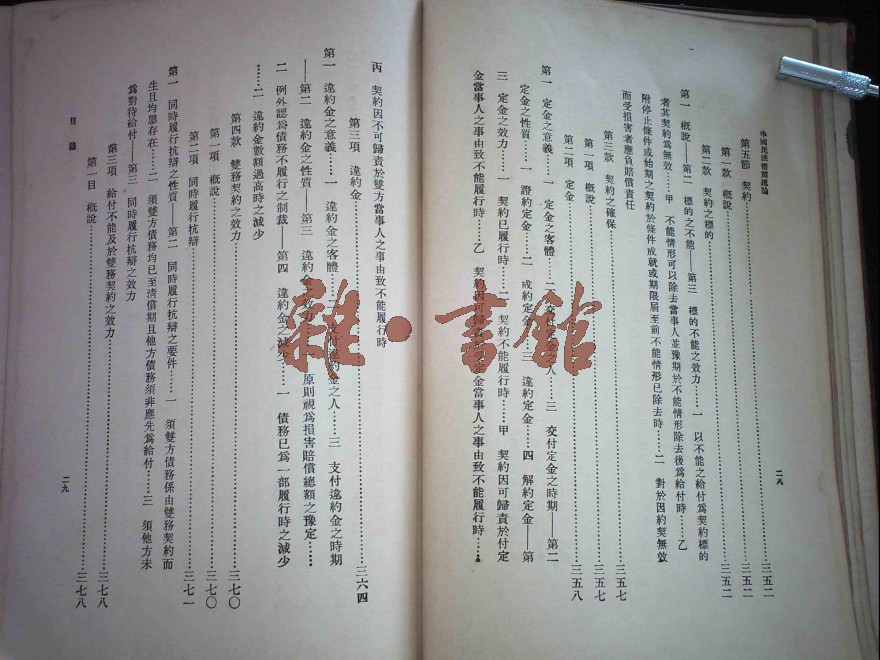 中國民法債篇總論
二八
第五節 契約……三五二
第一款 概說……三五二
第二款 契約之標的……三五二
第一 概說——第二 標的之不能——第三 標的不能之效力……一 以不能之給付爲契約標的
者其契約爲無效……甲 不能情形可以除去當事人並豫期於不能情形除去後爲給付時……乙
附停止條件或始期之契約於條件成就或期限屆至前不能情形已除去時……二 對於因約契無效
而受損害者應負賠償責任
第三款 契約之確保……三五七
第一項 概說……三五七
第二項 定金……三五八
第一 定金之意義……一 定金之客體……二 交付定金之人……三 交付定金之時期——第二
定金之性質……一 證約定金……二 成約定金……三 違約定金……四 解約定金——第
三 定金之效力……一 契約已履行時……二 契約不能履行時……甲 契約因可歸責於付定
金當事人之事由致不能履行時……乙 契約因可歸責於受定金當事人之事由致不能履行時……
丙 契約因不可歸責於雙方當事人之事由致不能履行時
第三項 違約金……三六四
第一 違約金之意義……一 違約金之客體……二 支付違約金之人……三 支付違約金之時期
——第二 違約金之性質——第三 違約金之效力……一 原則視爲損害賠償總額之豫定……
二 例外認爲債務不履行之制裁——第四 違約金之減少……一 債務已爲一部履行時之減少
……二 違約金數額過高時之減少
第四款 雙務契約之效力……三七〇
第一項 概說……三七〇
第二項 同時履行抗辯……三七一
第一 同時履行抗辯之性質——第二 同時履行抗辯之要件……一 須雙方債務係由雙務契約而
生且均屬存在……二 須雙方債務均已至清償期且他方債務須非應先爲給付……三 須他方未
爲對待給付——第三 同時履行抗辯之效力
第三項 給付不能及於雙務契約之效力……三七八
第一目 概說……三七八
目錄
二九
雜·書館